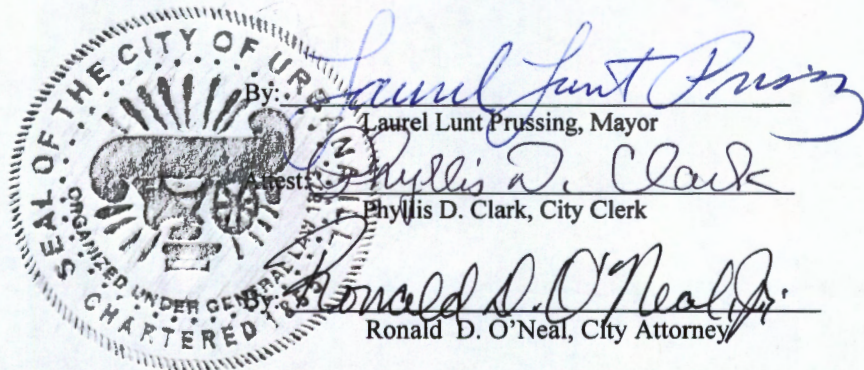 SEAL OF THE CITY OF URBANA, ILL.
ORGANIZED UNDER GENERAL LAW
CHARTERED
By: Laurel Lunt Prussing
Laurel Lunt Prussing, Mayor
Attest: Phyllis D. Clark
Phyllis D. Clark, City Clerk
By: Ronald D. O'Neal, Jr.
Ronald D. O'Neal, City Attorney